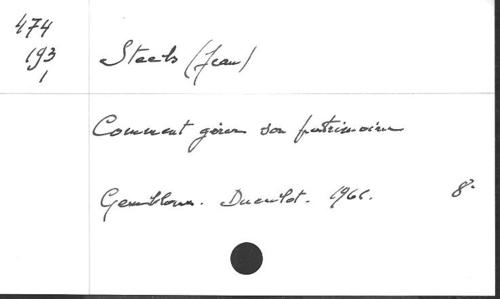 474
193 Staels (Jean)
1
Comment gérer son patrimoine
Gembloux. Duculot. 1966. 8°